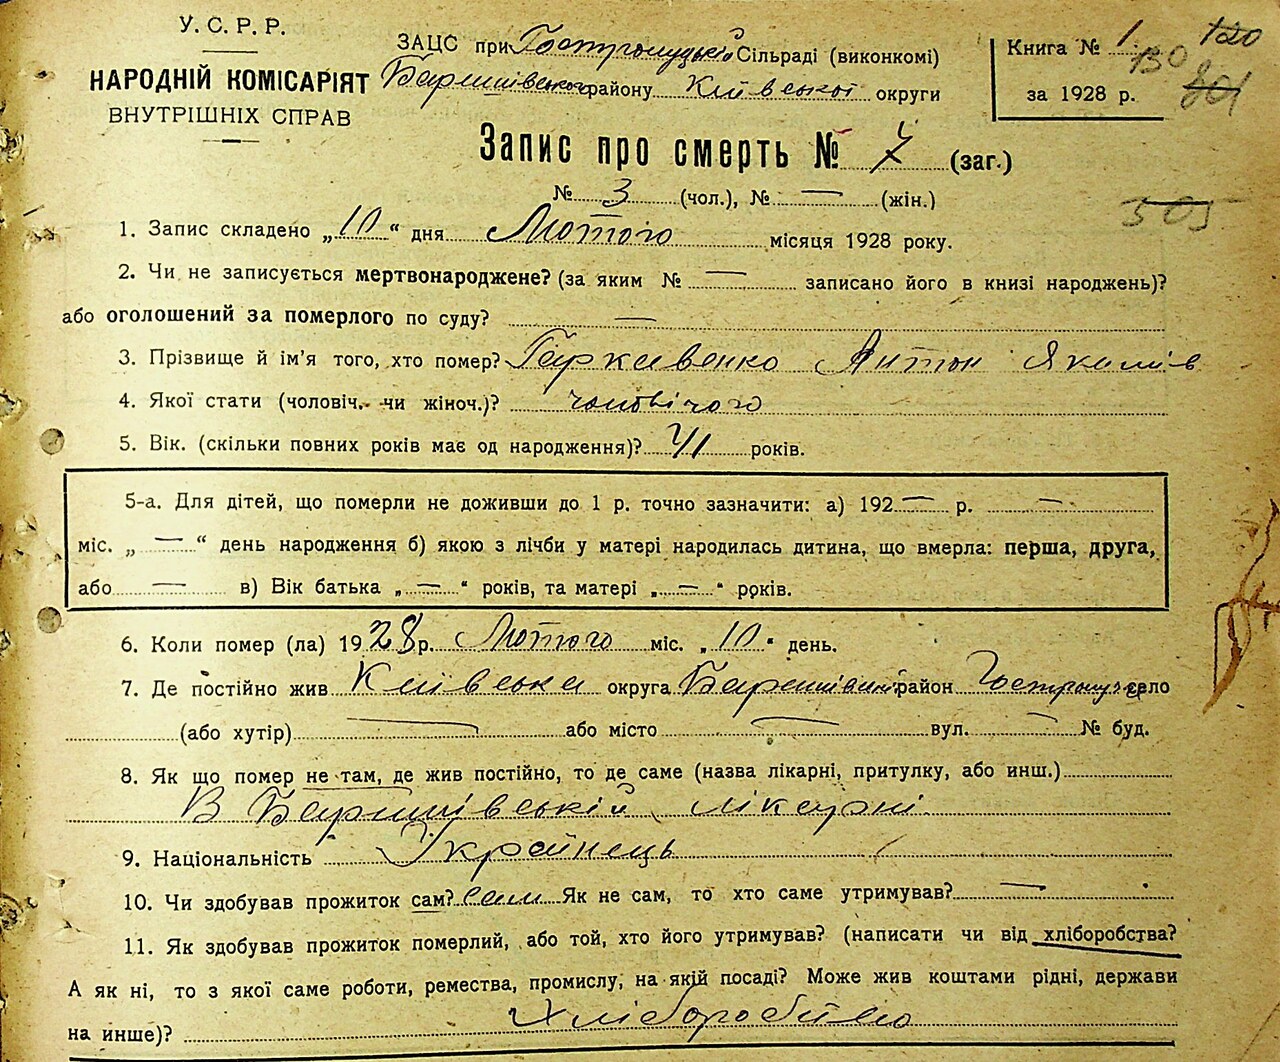 У. С. Р. Р.
НАРОДНІЙ КОМІСАРІЯТ
ВНУТРІШНІХ СПРАВ
ЗАЦС при Гостролуцькій Сільраді (виконкомі)
Баришівського району Київської округи
Книга № 1
за 1928 р.
120
130
Запис про смерть № (заг.)
№ 3 (чол.), № — (жін.)
505
1. Запис складено „10“ дня Лютого місяця 1928 року.
2. Чи не записується мертвонароджене? (за яким № — записано його в книзі народжень)?
або оголошений за померлого по суду? —
3. Прізвище й ім'я того, хто помер? Гаркавенко Антон Якимів
4. Якої стати (чоловіч. чи жіноч.)? чоловічого
5. Вік. (скільки повних років має од народження)? 41 років.
5-а. Для дітей, що померли не доживши до 1 р. точно зазначити: а) 192 — р. —
міс. „ — “ день народження б) якою з лічби у матері народилась дитина, що вмерла: перша, друга,
або — в) Вік батька „ — “ років, та матері „ — “ років.
6. Коли помер (ла) 1928 р. Лютого міс. „10“ день.
7. Де постійно жив Київська округа Баришівський район Гостролуча село
(або хутір) — або місто — вул. — № буд.
8. Як що помер не там, де жив постійно, то де саме (назва лікарні, притулку, або инш.)
В Баришівській лікарні
9. Національність Українець
10. Чи здобував прожиток сам? сам Як не сам, то хто саме утримував? —
11. Як здобував прожиток померлий, або той, хто його утримував? (написати чи від хліборобства?
А як ні, то з якої саме роботи, ремества, промислу, на якій посаді? Може жив коштами рідні, держави
на инше)? Хліборобство